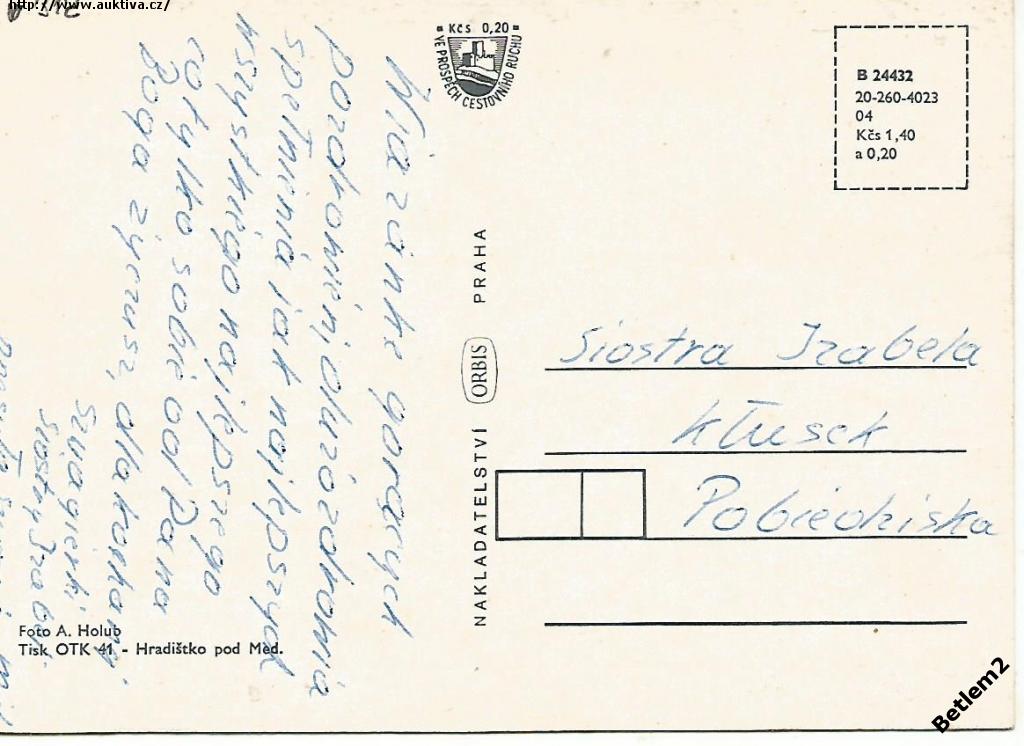 http://www.auktiva.cz/
Wiązankę gorących
pozdrowień, dużo zdrowia
spełnienia jak najlepszych
wszystkiego najlepszego
co tylko sobie od Pana
Boga życzysz, dla kochanej
Szwagierki
siostry Izabeli
Kčs 0,20
VE PROSPĚCH CESTOVNÍHO RUCHU
NAKLADATELSTVÍ ORBIS PRAHA
B 24432
20-260-4023
04
Kčs 1,40
a 0,20
Siostra Izabela
Kłusek
Pobiedziska
Foto A. Holub
Tisk OTK 41 - Hradištko pod Med.
Betlem2